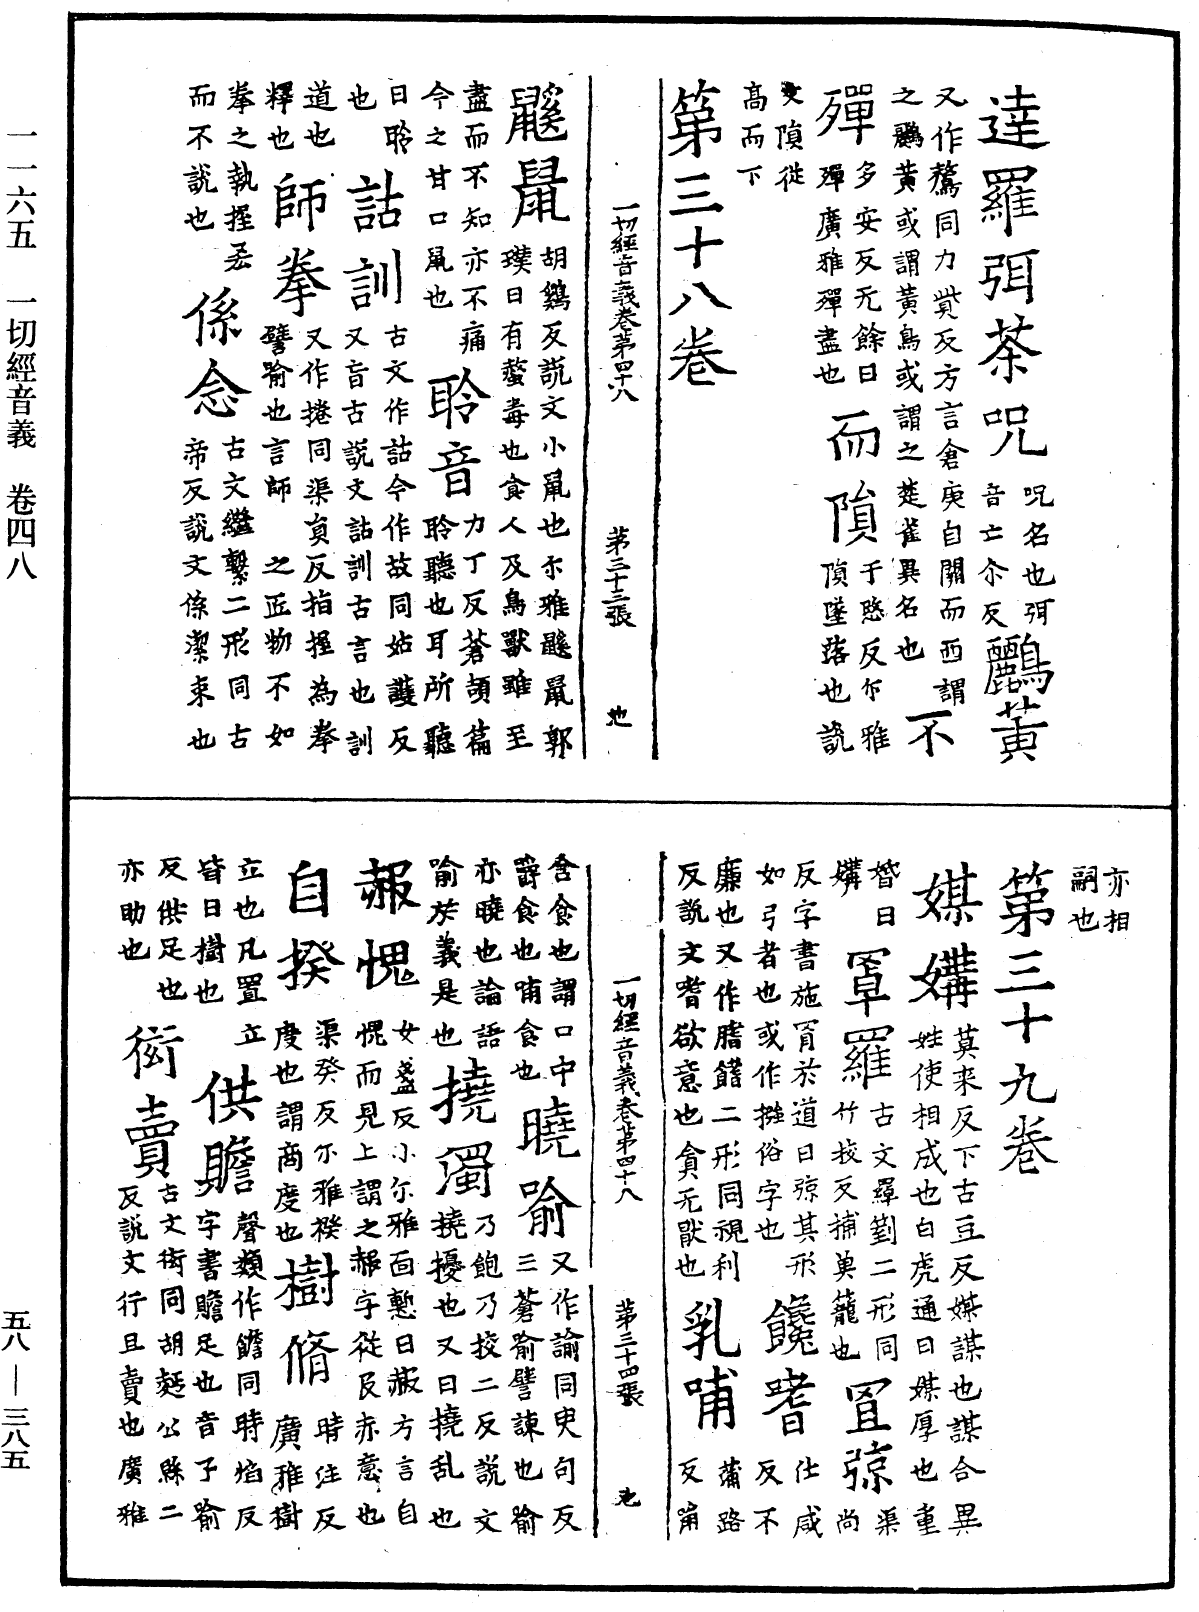 達羅弭荼呪 呪名也弭
音亡尒反 鸝黃
又作鶩同力貲反方言倉庚自關而西謂
之鸝黃或謂黃鳥或謂之楚雀異名也 不
殫 多安反无餘曰
殫廣雅殫盡也 而隕 于愍反尒雅
隕墜落也說
文隕從
高而下
第三十八卷
一切經音義卷第四十八 第三十三張
鼷鼠 胡鷄反說文小鼠也尒雅鼷鼠郭
璞曰有螫毒也食人及鳥獸雖至
盡而不知亦不痛
今之甘口鼠也 聆音 力丁反蒼頡篇
聆聽也耳所聽
曰聆
也 詁訓 古文作詁今作故同姑護反
又音古說文詁訓古言也訓
道也
釋也 師拳 又作捲同渠負反指握為拳
譬喻也言師之匠物不如
拳之執握
而不說也 係念 古文繼繫二形同古
帝反說文係潔束也
亦相
嗣也
第三十九卷
媒媾 莫来反下古豆反媒謀也謀合異
姓使相成也白虎通曰媒厚也重
婚曰
媾 罩羅 古文羄𠠦二形同
竹挍反捕魚籠也 罝弶 渠
尚
反字書施罥於道曰弶其形
如弓者也或作𢫕俗字也 饞嗜 仕咸
反不
廉也又作䐈饎二形同視利
反說文嗜欲意也貪无猒也 乳哺 蒲路
反
含食也謂口中
嚼食也哺食也 曉喻 又作諭同臾句反
三蒼喻譬諫也喻
亦曉也論語
喻於義是也 撓濁 乃飽乃挍二反說文
撓擾也又曰撓乱也
赧愧 女盞反小尒雅面慙曰赧方言自
愧而見上謂之赧字從𠬝赤意也
自揆 渠癸反尒雅揆
度也謂商度也 樹脩 時注反
廣雅樹
立也凡置立
皆曰樹也 供贍 聲類作饍同時焰反
字書贍足也音子喻
反供足也
亦助也 衒賣 古文衒同胡麪公縣二
反說文行且賣也廣雅
一切經音義卷第四十八 第三十四張
一一六五 一切經音義 卷四八
五八—三八五